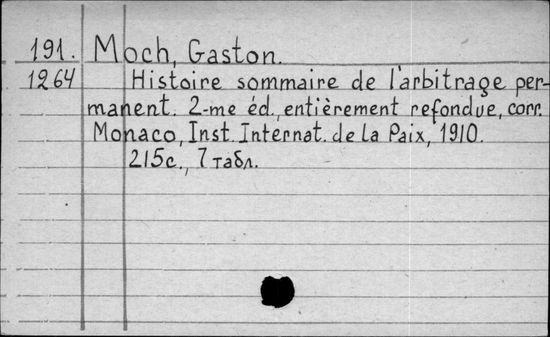 191. Moch, Gaston.
1264 Histoire sommaire de l'arbitrage per-
manent. 2-me éd., entièrement refondue, corr.
Monaco, Inst. Internat. de la Paix, 1910.
215с., 7 табл.